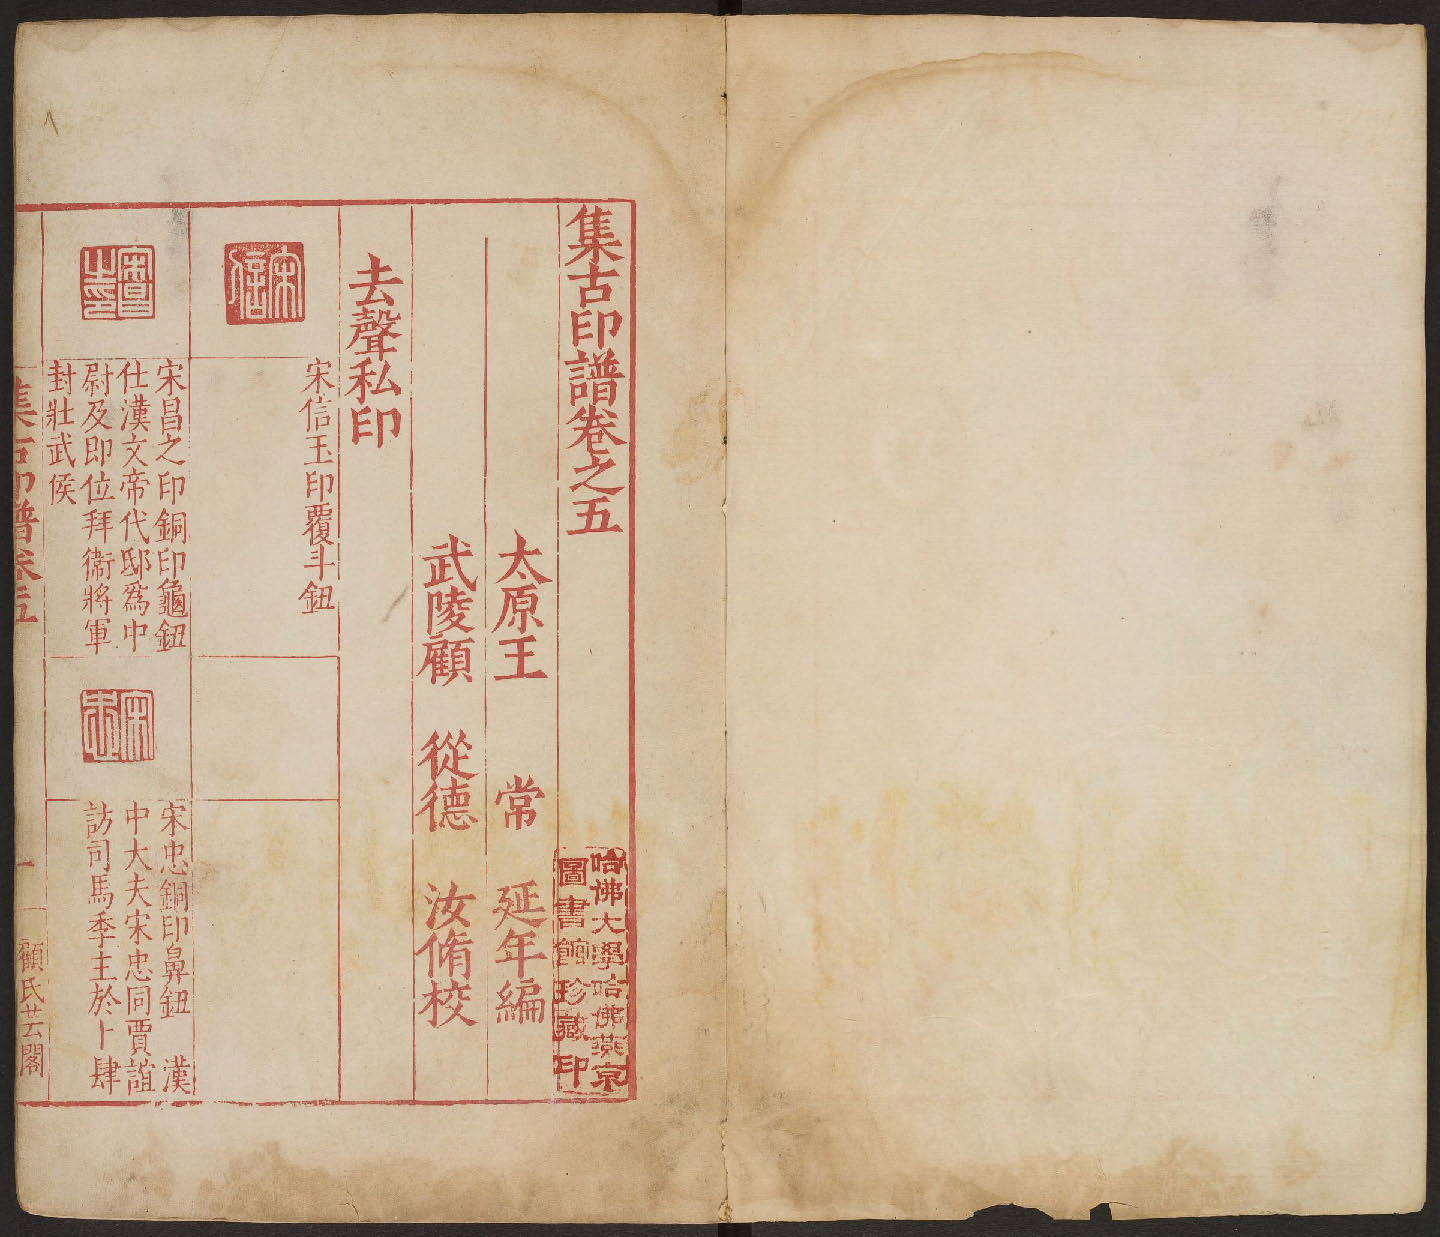 集古印譜卷之五
太原王 常 延年編
武陵顧 從德 汝脩校
去聲私印
宋信
宋信玉印覆斗鈕
宋昌之印
宋昌之印銅印龜鈕
仕漢文帝代邸爲中
尉及即位拜衞將軍
封壯武侯
宋忠
宋忠銅印鼻鈕 漢
中大夫宋忠同賈誼
訪司馬季主於卜肆
集古印譜卷五
一
顧氏芸閣
哈佛大學哈佛燕京
圖書館珍藏印